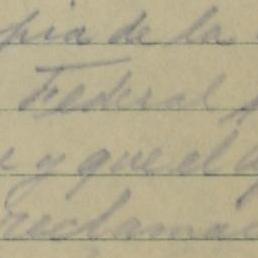 pia de la
Federal
y que el
reclama